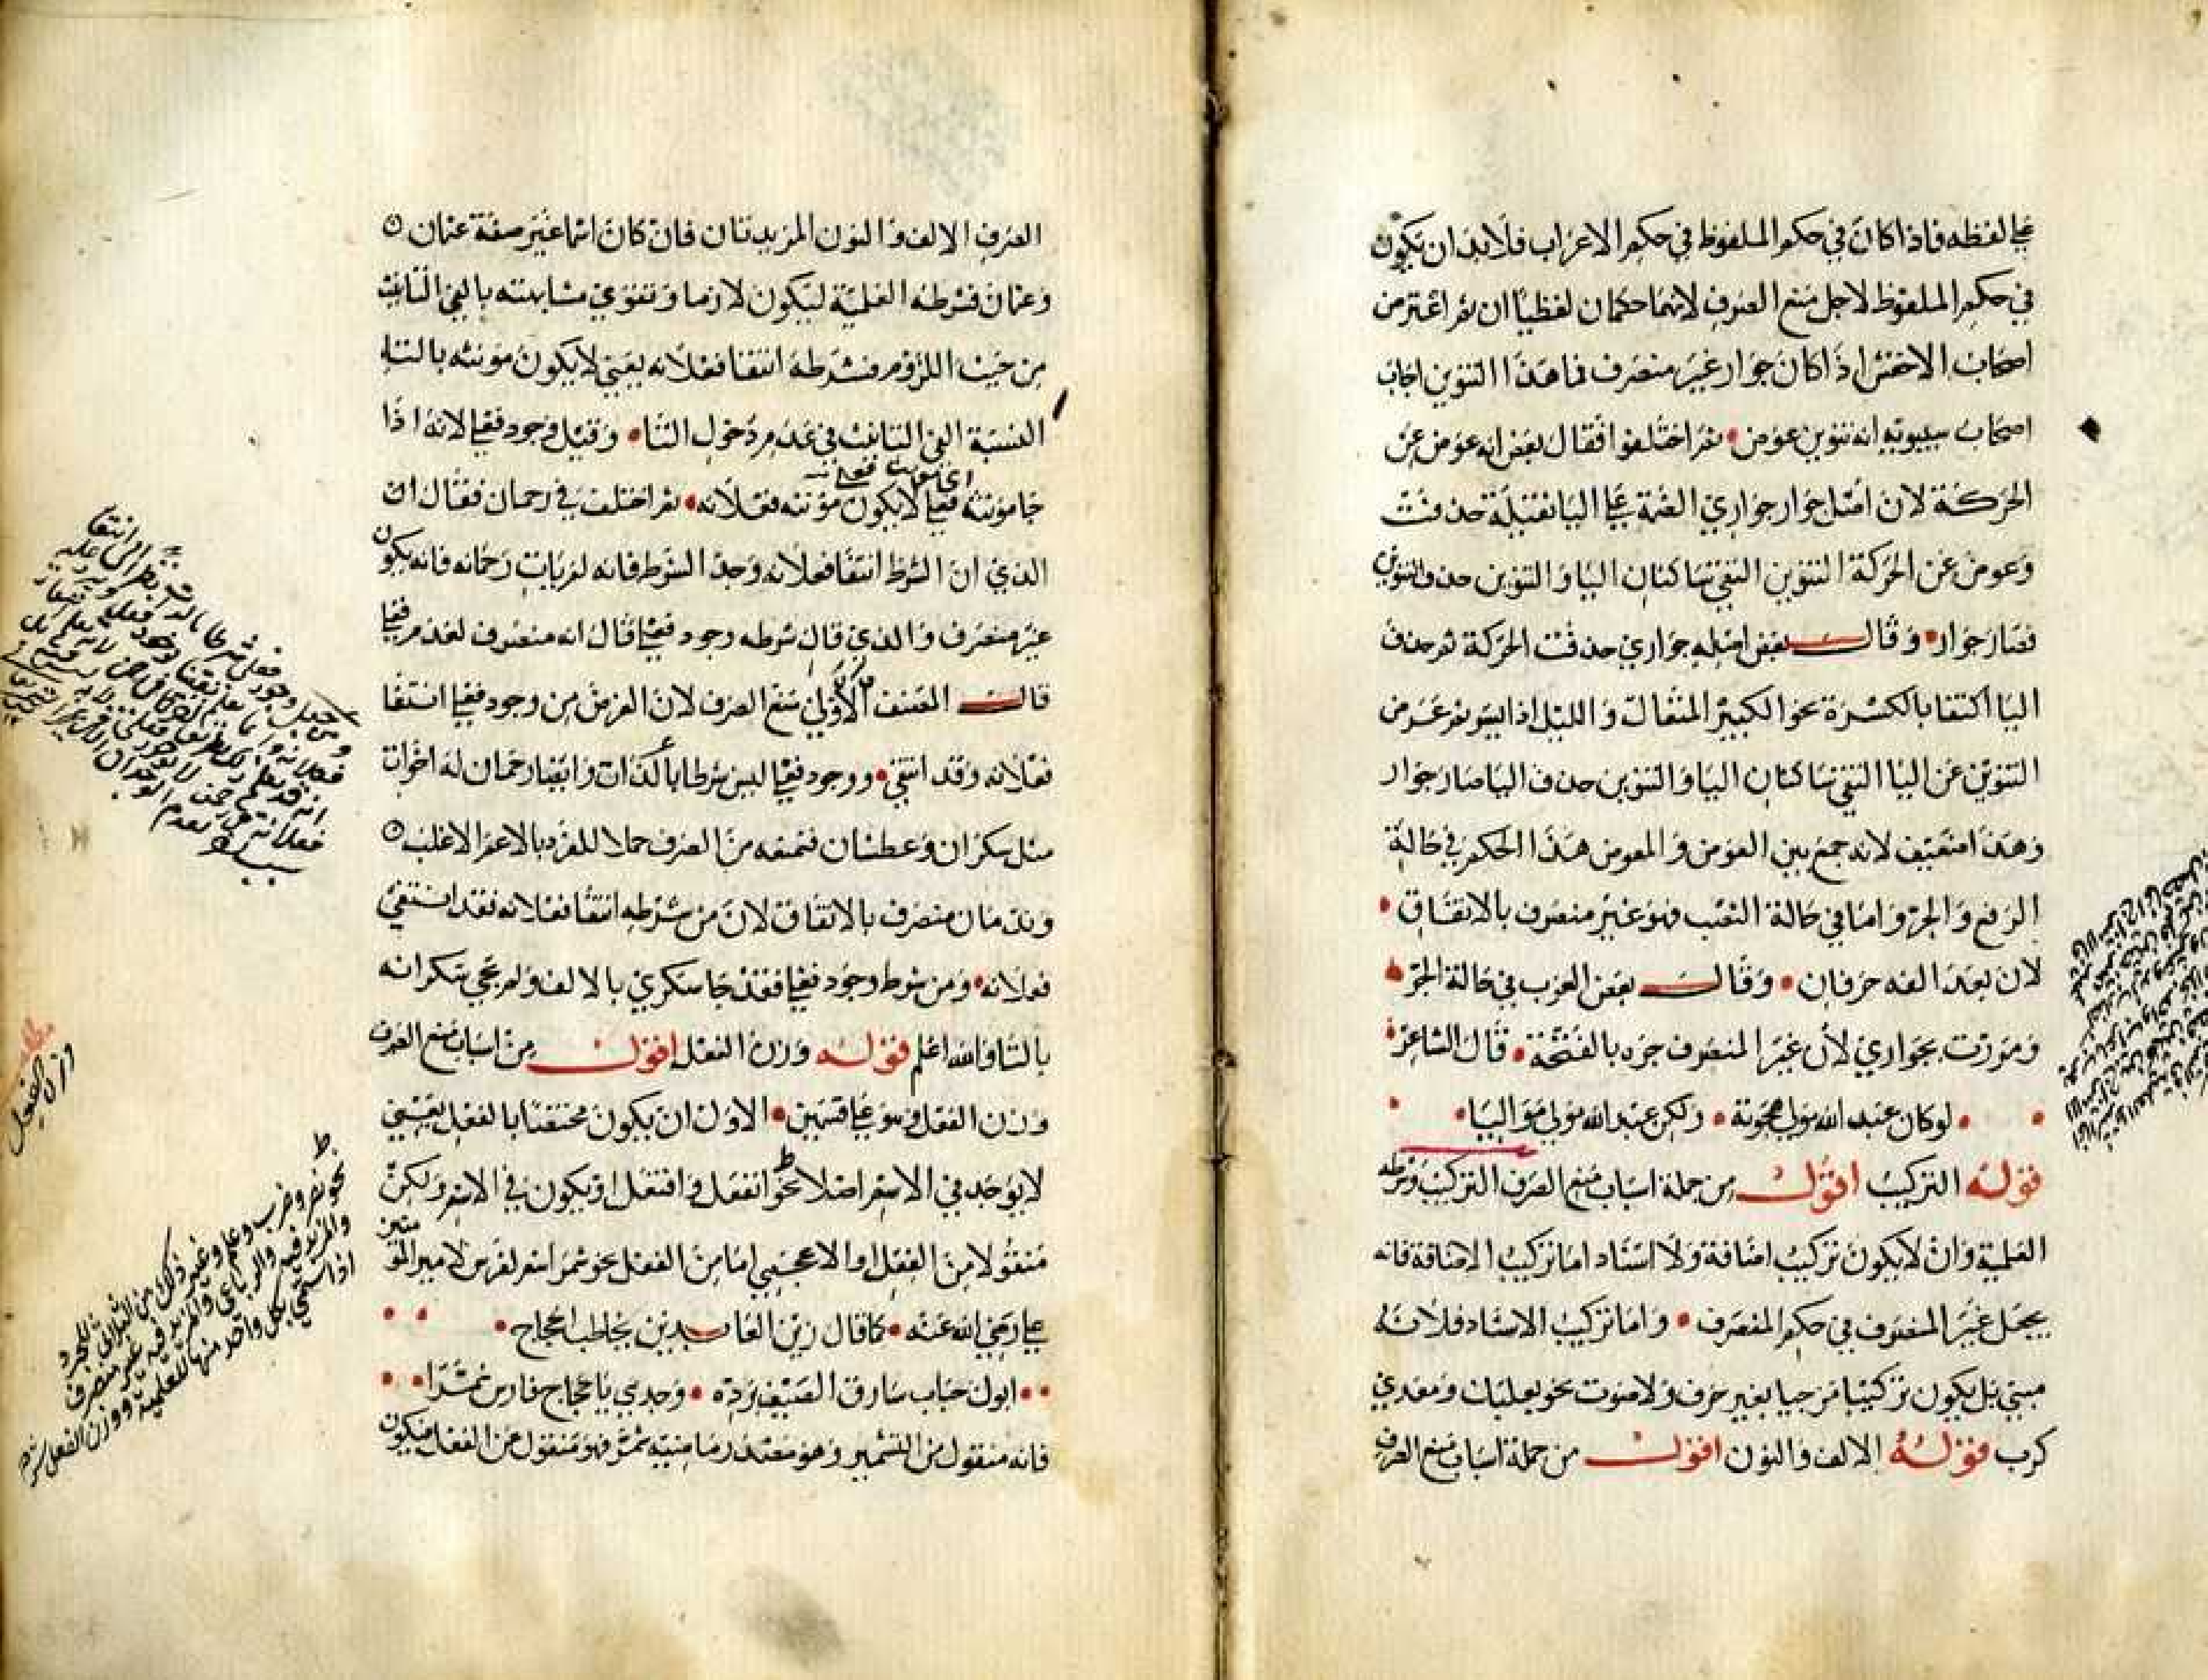 على لفظه فاذا كان في حكم الملفوظ في حكم الاعراب فلابد ان يكون
في حكم الملفوظ لاجل منع الصرف لانهما حكمان لفظيا ان ثم اعترض
اصحاب الاخفش اذا كان جوار غير منصرف فما هذا التنوين اجاب
اصحاب سيبويه انه تنوين عوض • ثم اختلفوا فقال بعض انه عوض عن
الحركة لان اصل جوار جواري الضمة على اليا ثقيلة حذفت
وعوض عن الحركة التنوين التقى ساكنان اليا والتنوين حذف التنوين
فصار جوار • وقال بعض اصله جواري حذفت الحركة ثم حذف
اليا اكتفا بالكسرة نحو الكبير المتعال والليل اذا يسر ثم عوض
التنوين عن اليا التقى ساكنان اليا والتنوين حذف اليا صار جوار
وهذا ضعيف لانه جمع بين العوض والمعوض هذا الحكم في حالة
الرفع والجر واما في حالة النصب فهو غير منصرف بالاتفاق •
لان بعد الفه حرفان • وقال بعض العرب في حالة الجر •
ومررت بجواري لان غير المنصرف جره بالفتحة • قال الشاعر
• لو كان عبد الله مولى هجوته • ولكن عبد الله مولى مواليا •
قوله التركيب اقول من جملة اسباب منع الصرف التركيب وشرطه
العلمية وان لا يكون تركيب اضافة ولا اسناد اما تركيب الاضافة فانه
يجعل غير المنصرف في حكم المنصرف • واما تركيب الاسناد فلانه
مبني بل يكون تركيبا مزجيا بغير حرف ولا صوت نحو بعلبك ومعدي
كرب قوله الالف والنون اقول من جملة اسباب منع الصرف
الصرف الالف والنون المزيدتان فان كان اسما غير صفة عثمان
وعثمان فشرطه العلمية ليكون لازما وتقوي مشابهته بالفي التانيث
من حيث اللزوم فشرطه انتفا فعلانه يعني لا يكون مونثه بالتا
النسبة الفي التانيث في عدم دخول التا • وقيل وجود فعلى لانه اذا
جا مونثه فعلى لا يكون مؤنثه فعلانه • ثم اختلف في رحمان فقال ان
الذي ان الشرط انتفا فعلانه وجد الشرط فانه لم يات رحمانه فانه يكون
غير منصرف والذي قال شرطه وجود فعلى قال انه منصرف لعدم فعلى
قال المصنف الاولى منع الصرف لان الغرض من وجود فعلى انتفا
فعلانه وقد انتفى • ووجود فعلى ليس شرطا بالذات وايضا رحمان له اخوات
مثل سكران وعطشان فتمنعه من الصرف حملا للفرد بالاعم الاغلب
وندمان منصرف بالاتفاق لان من شرطه انتفا فعلانه فقد انتفى
فعلانه • ومن شرط وجود فعلى فقد جا سكرى بالالف ولم يجي سكرانه
بالتا والله اعلم قوله وزن الفعل اقول من اسباب منع الصرف
وزن الفعل وهو على قسمين • الاول ان يكون مختصا بالفعل يعني
لا يوجد في الاسم اصلا نحو انفعل وافتعل او يكون في الاسم ولكن
منقولا من الفعل او الاعجمي اما من الفعل نحو شمر اسم لفرس لامير المؤمنين
علي رضي الله عنه • كما قال زين العابدين يخاطب الحجاج •
•• ابوك حباب سارق الضيف برده • وجدي يا حجاج فارس شمرا ••
فانه منقول من التشمير وهو فهو منقول عن الفعل فيكون
وزن الفعل
نحو نصر وضرب وعلم وغير ذلك من الثلاثي المجرد
والمزيد فيه والرباعي والمزيد فيه غير منصرف
اذا سمي بكل واحد منها للعلمية ووزن الفعل